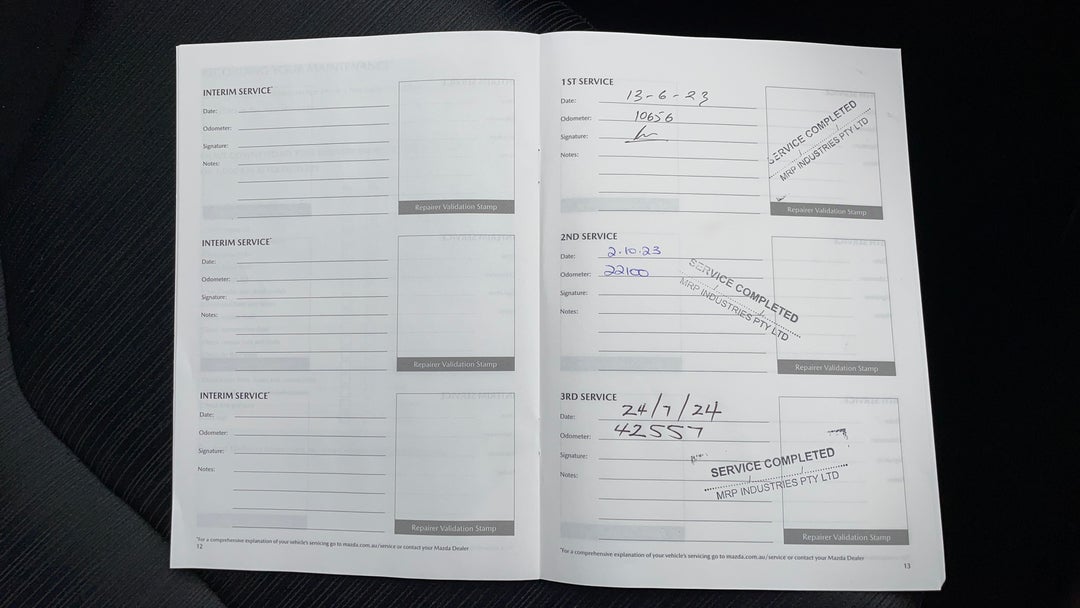 INTERIM SERVICE*
Date:
Odometer:
Signature:
Notes:
Repairer Validation Stamp
INTERIM SERVICE*
Date:
Odometer:
Signature:
Notes:
Repairer Validation Stamp
INTERIM SERVICE*
Date:
Odometer:
Signature:
Notes:
Repairer Validation Stamp
*For a comprehensive explanation of your vehicle's servicing go to mazda.com.au/service or contact your Mazda Dealer
12
1ST SERVICE
Date: 13-6-23
Odometer: 10656
Signature:
Notes:
SERVICE COMPLETED
MRP INDUSTRIES PTY LTD
Repairer Validation Stamp
2ND SERVICE
Date: 2.10.23
Odometer: 22100
Signature:
Notes:
SERVICE COMPLETED
MRP INDUSTRIES PTY LTD
Repairer Validation Stamp
3RD SERVICE
Date: 24/7/24
Odometer: 42557
Signature:
Notes:
SERVICE COMPLETED
MRP INDUSTRIES PTY LTD
Repairer Validation Stamp
*For a comprehensive explanation of your vehicle's servicing go to mazda.com.au/service or contact your Mazda Dealer
13